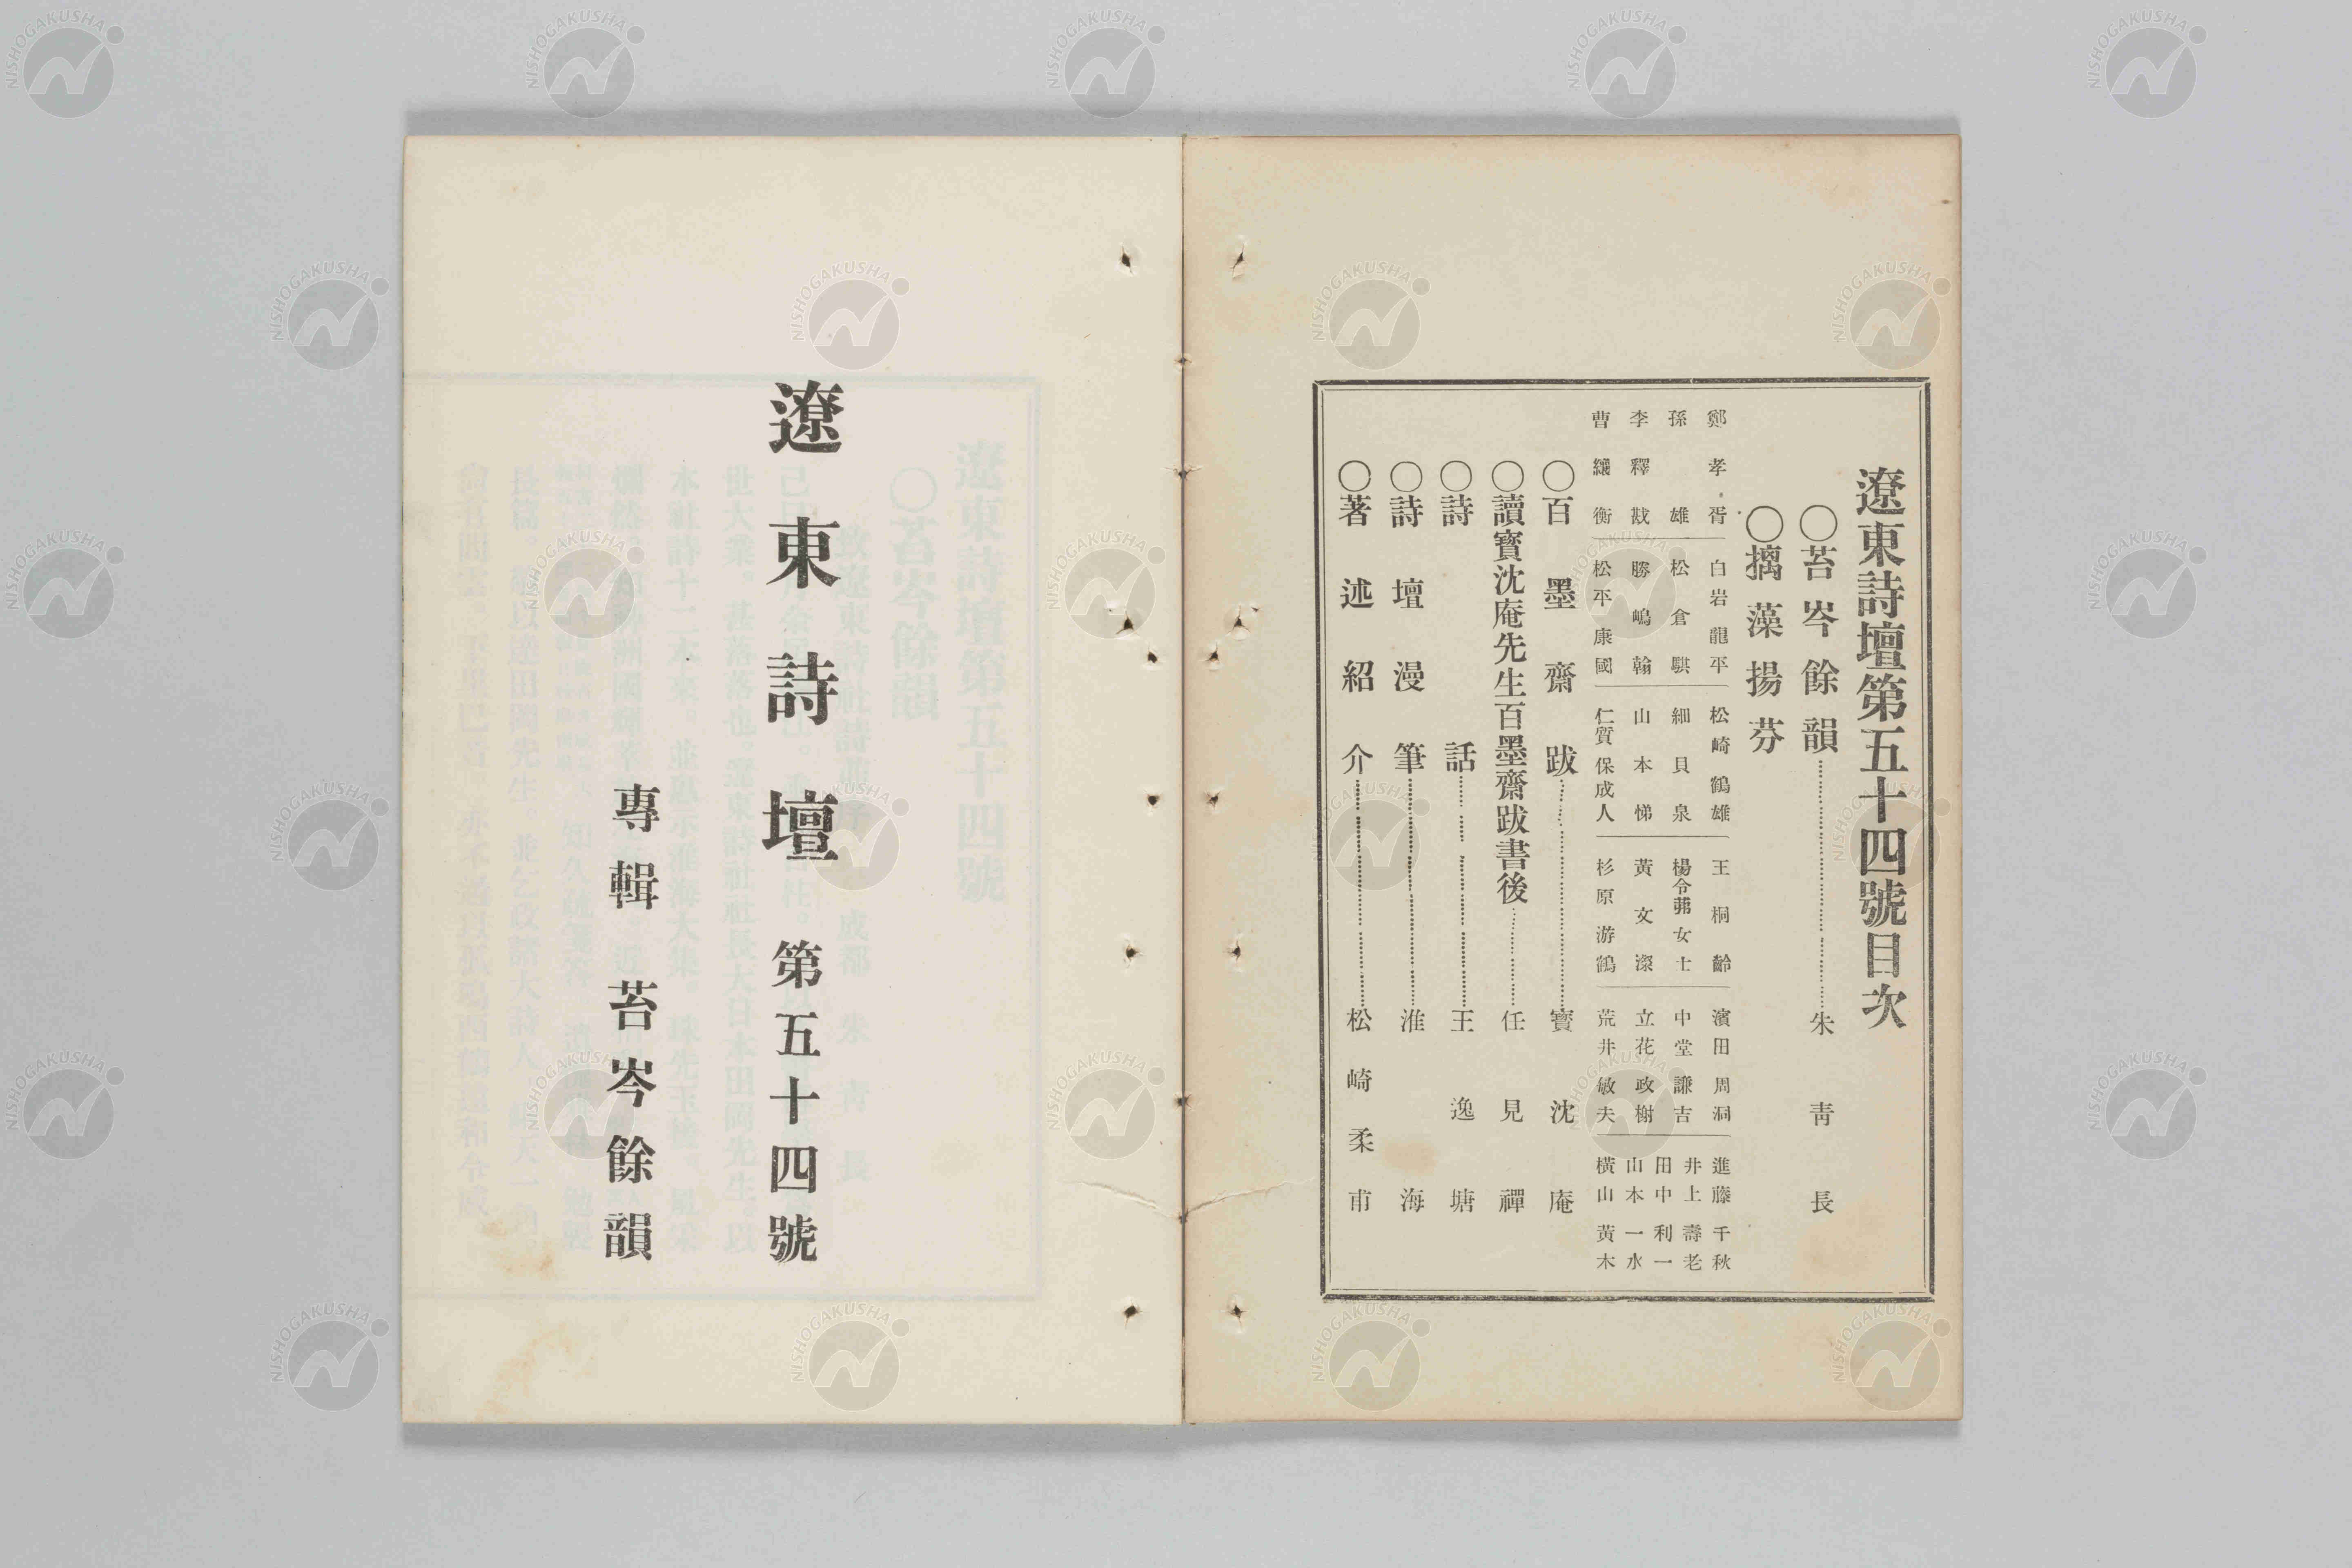 遼東詩壇第五十四號目次
〇苔岑餘韻 朱靑長
〇摛藻揚芬
鄭孝胥 白岩龍平 松崎鶴雄 王桐齡 濱田周洞 進藤千秋
孫雄 松倉騏 細貝泉 楊令茀女士 中堂謙吉 井上壽老
田中利一
李釋戡 勝嶋翰 山本悌 黃文濚 立花政樹 山木一水
曹纕蘅 松平康國 仁賀保成人 杉原游鶴 荒井敏夫 橫山黃木
〇百墨齋跋 寶沈庵
〇讀寶沈庵先生百墨齋跋書後 任見禪
〇詩話 王逸塘
〇詩壇漫筆 淮海
〇著述紹介 松崎柔甫
遼東詩壇 第五十四號
專輯 苔岑餘韻
NISHOGAKUSHA